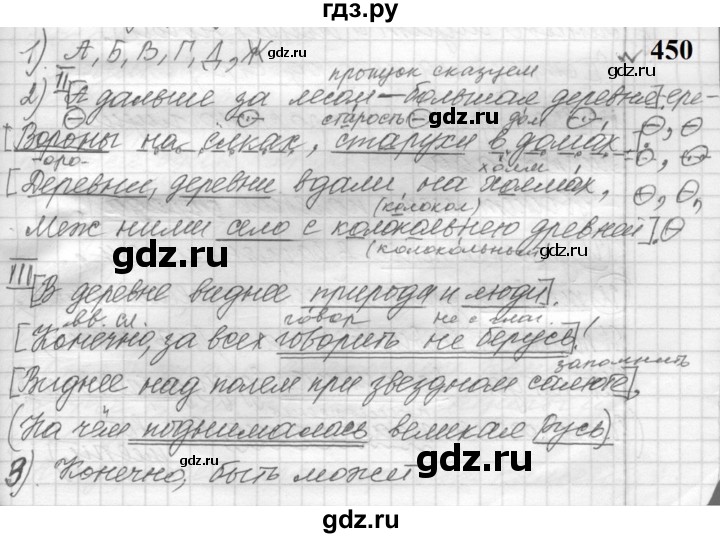 гдз.ру
1). А, Б, В, Г, Д, Ж
450
пропуск сказуем
2) II [А дальше за лесом – большая деревня]. ере-
старость дом
[Вороны на ёлках, старухи в домах.
-оро- холм
[Деревни, деревни вдали, на холмах,
(колокол)
Меж ними село с колокольнею древней].
(колокольный)
gdz.ru
gdz.ru
III [В деревне виднее природа и люди].
вв. сл. говор не с глаг.
[Конечно, за всех говорить не берусь!
запомнить
[Виднее над полем при звёздном салюте],
(На чём поднималась великая Русь).
3). Конечно, быть может
gdz.ru
gdz.ru
gdz.ru
gdz.ru
gdz.ru